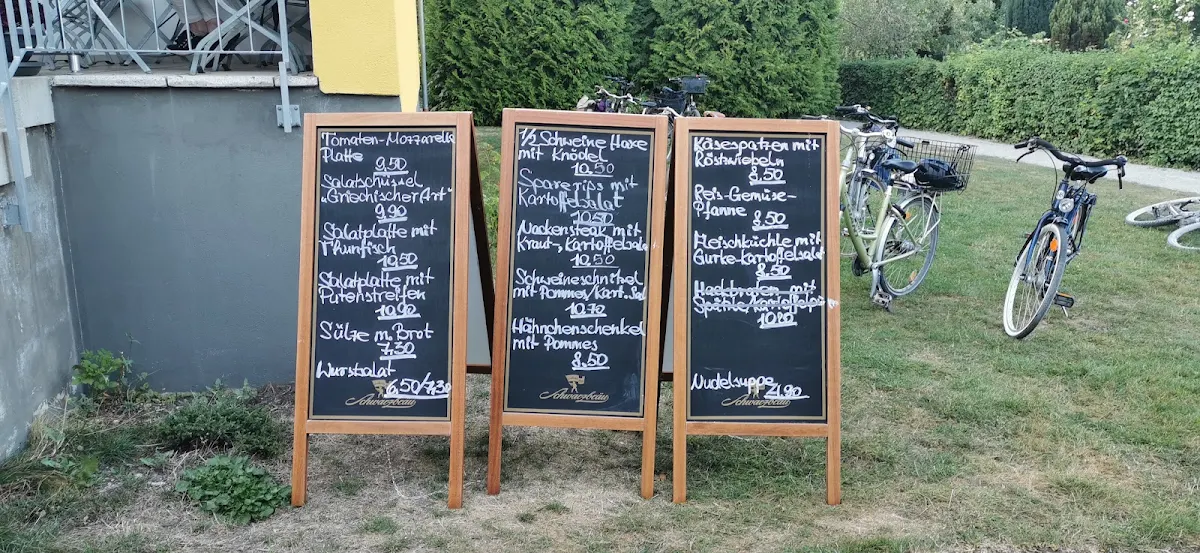 Tomaten-Mozzarella
Platte
9,50
Salatschüssel
„Griechischer Art"
9,90
Salatplatte mit
Thunfisch
10,50
Salatplatte mit
Putenstreifen
10,90
Sülze m. Brot
7,30
Wurstsalat
6,50/7,30
Schwarzbräu
1/2 Schweine Haxe
mit Knödel
10,50
Sparerips mit
Kartoffelsalat
10,50
Nackensteak mit
Kraut-, Kartoffelsalat
10,50
Schweineschnitzel
mit Pommes/Kart.Sal
10,70
Hähnchenschenkel
mit Pommes
8,50
Schwarzbräu
Käsespatzen mit
Röstzwiebeln
8,50
Reis-Gemüse-
Pfanne
8,50
Fleischküchle mit
Gurke-Kartoffelsalat
8,50
Hackbraten mit
Spätzle/Kartoffelpüree
10,20
Nudelsuppe
4,90
Schwarzbräu